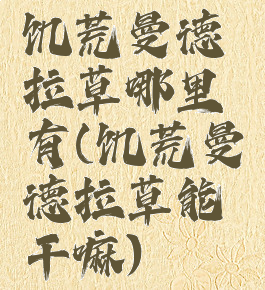 饥荒曼德
拉草哪里
有(饥荒曼
德拉草能
干嘛)